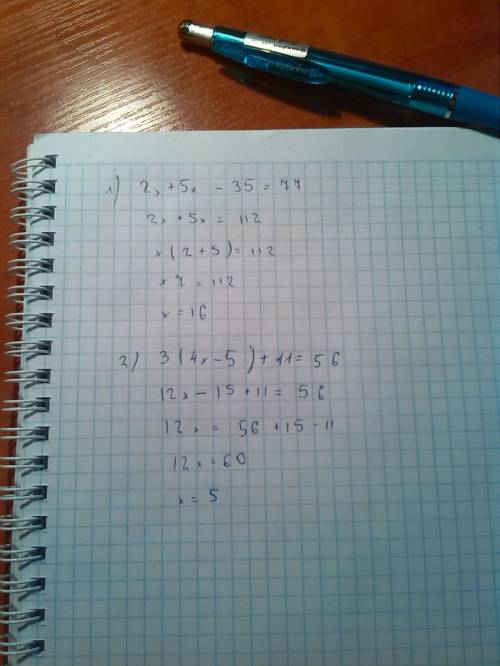 1) 2x + 5x - 35 = 77
2x + 5x = 112
x (2 + 5) = 112
x 7 = 112
x = 16
2) 3 (4x - 5) + 11 = 56
12x - 15 + 11 = 56
12x = 56 + 15 - 11
12x = 60
x = 5